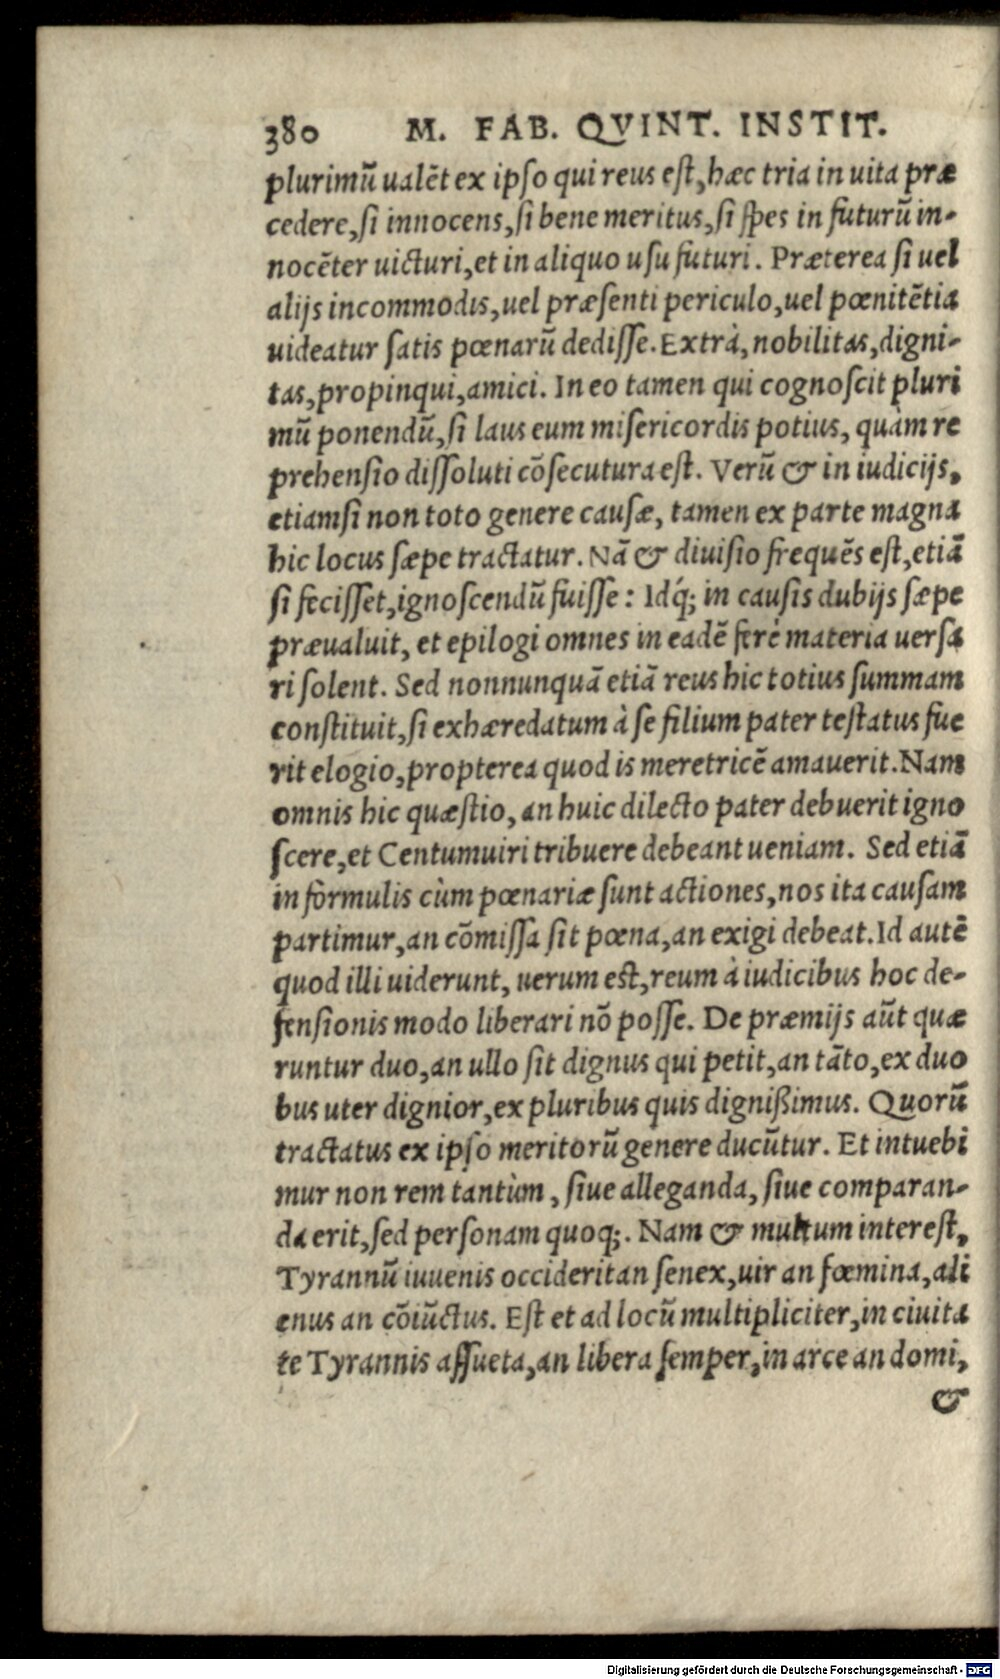 380 M. FAB. QVINT. INSTIT.
plurimū ualēt ex ipſo qui reus eſt, hæc tria in uita præ
cedere, ſi innocens, ſi bene meritus, ſi ſpes in futurū in-
nocēter uicturi, et in aliquo uſu futuri. Præterea ſi uel
alijs incommodis, uel præſenti periculo, uel pœnitētia
uideatur ſatis pœnarū dediſſe. Extrà, nobilitas, digni-
tas, propinqui, amici. In eo tamen qui cognoſcit pluri
mū ponendū, ſi laus eum miſericordis potius, quàm re
prehenſio diſſoluti cōſecutura eſt. Verū & in iudicijs,
etiamſi non toto genere cauſæ, tamen ex parte magna
hic locus ſæpe tractatur. Nā & diuiſio frequēs eſt, etiā
ſi feciſſet, ignoſcendū fuiſſe: Idq́; in cauſis dubijs ſæpe
præualuit, et epilogi omnes in eadē ferè materia uerſa
ri ſolent. Sed nonnunquā etiā reus hic totius ſummam
conſtituit, ſi exhæredatum à ſe filium pater teſtatus fue
rit elogio, propterea quod is meretricē amauerit. Nam
omnis hic quæſtio, an huic dilecto pater debuerit igno
ſcere, et Centumuiri tribuere debeant ueniam. Sed etiā
in fòrmulis cùm pœnariæ ſunt actiones, nos ita cauſam
partimur, an cōmiſſa ſit pœna, an exigi debeat. Id autē
quod illi uiderunt, uerum eſt, reum à iudicibus hoc de-
fenſionis modo liberari nō poſſe. De præmijs aūt quæ
runtur duo, an ullo ſit dignus qui petit, an tāto, ex duo
bus uter dignior, ex pluribus quis dignißimus. Quorū
tractatus ex ipſo meritorū genere ducūtur. Et intuebi
mur non rem tantùm, ſiue alleganda, ſiue comparan-
da erit, ſed perſonam quoq;. Nam & multum intereſt,
Tyrannū iuuenis occiderit an ſenex, uir an fœmina, ali
enus an cōiūctus. Eſt et ad locū multipliciter, in ciuita
te Tyrannis aſſueta, an libera ſemper, in arce an domi,
&
Digitalisierung gefördert durch die Deutsche Forschungsgemeinschaft - DFG